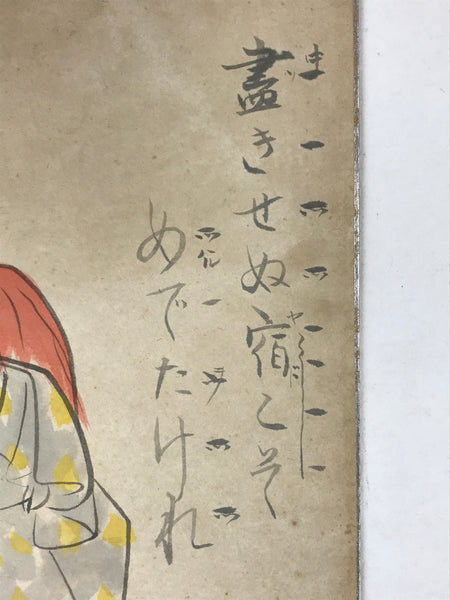 盡きせぬ宿こそ
めでたけれ